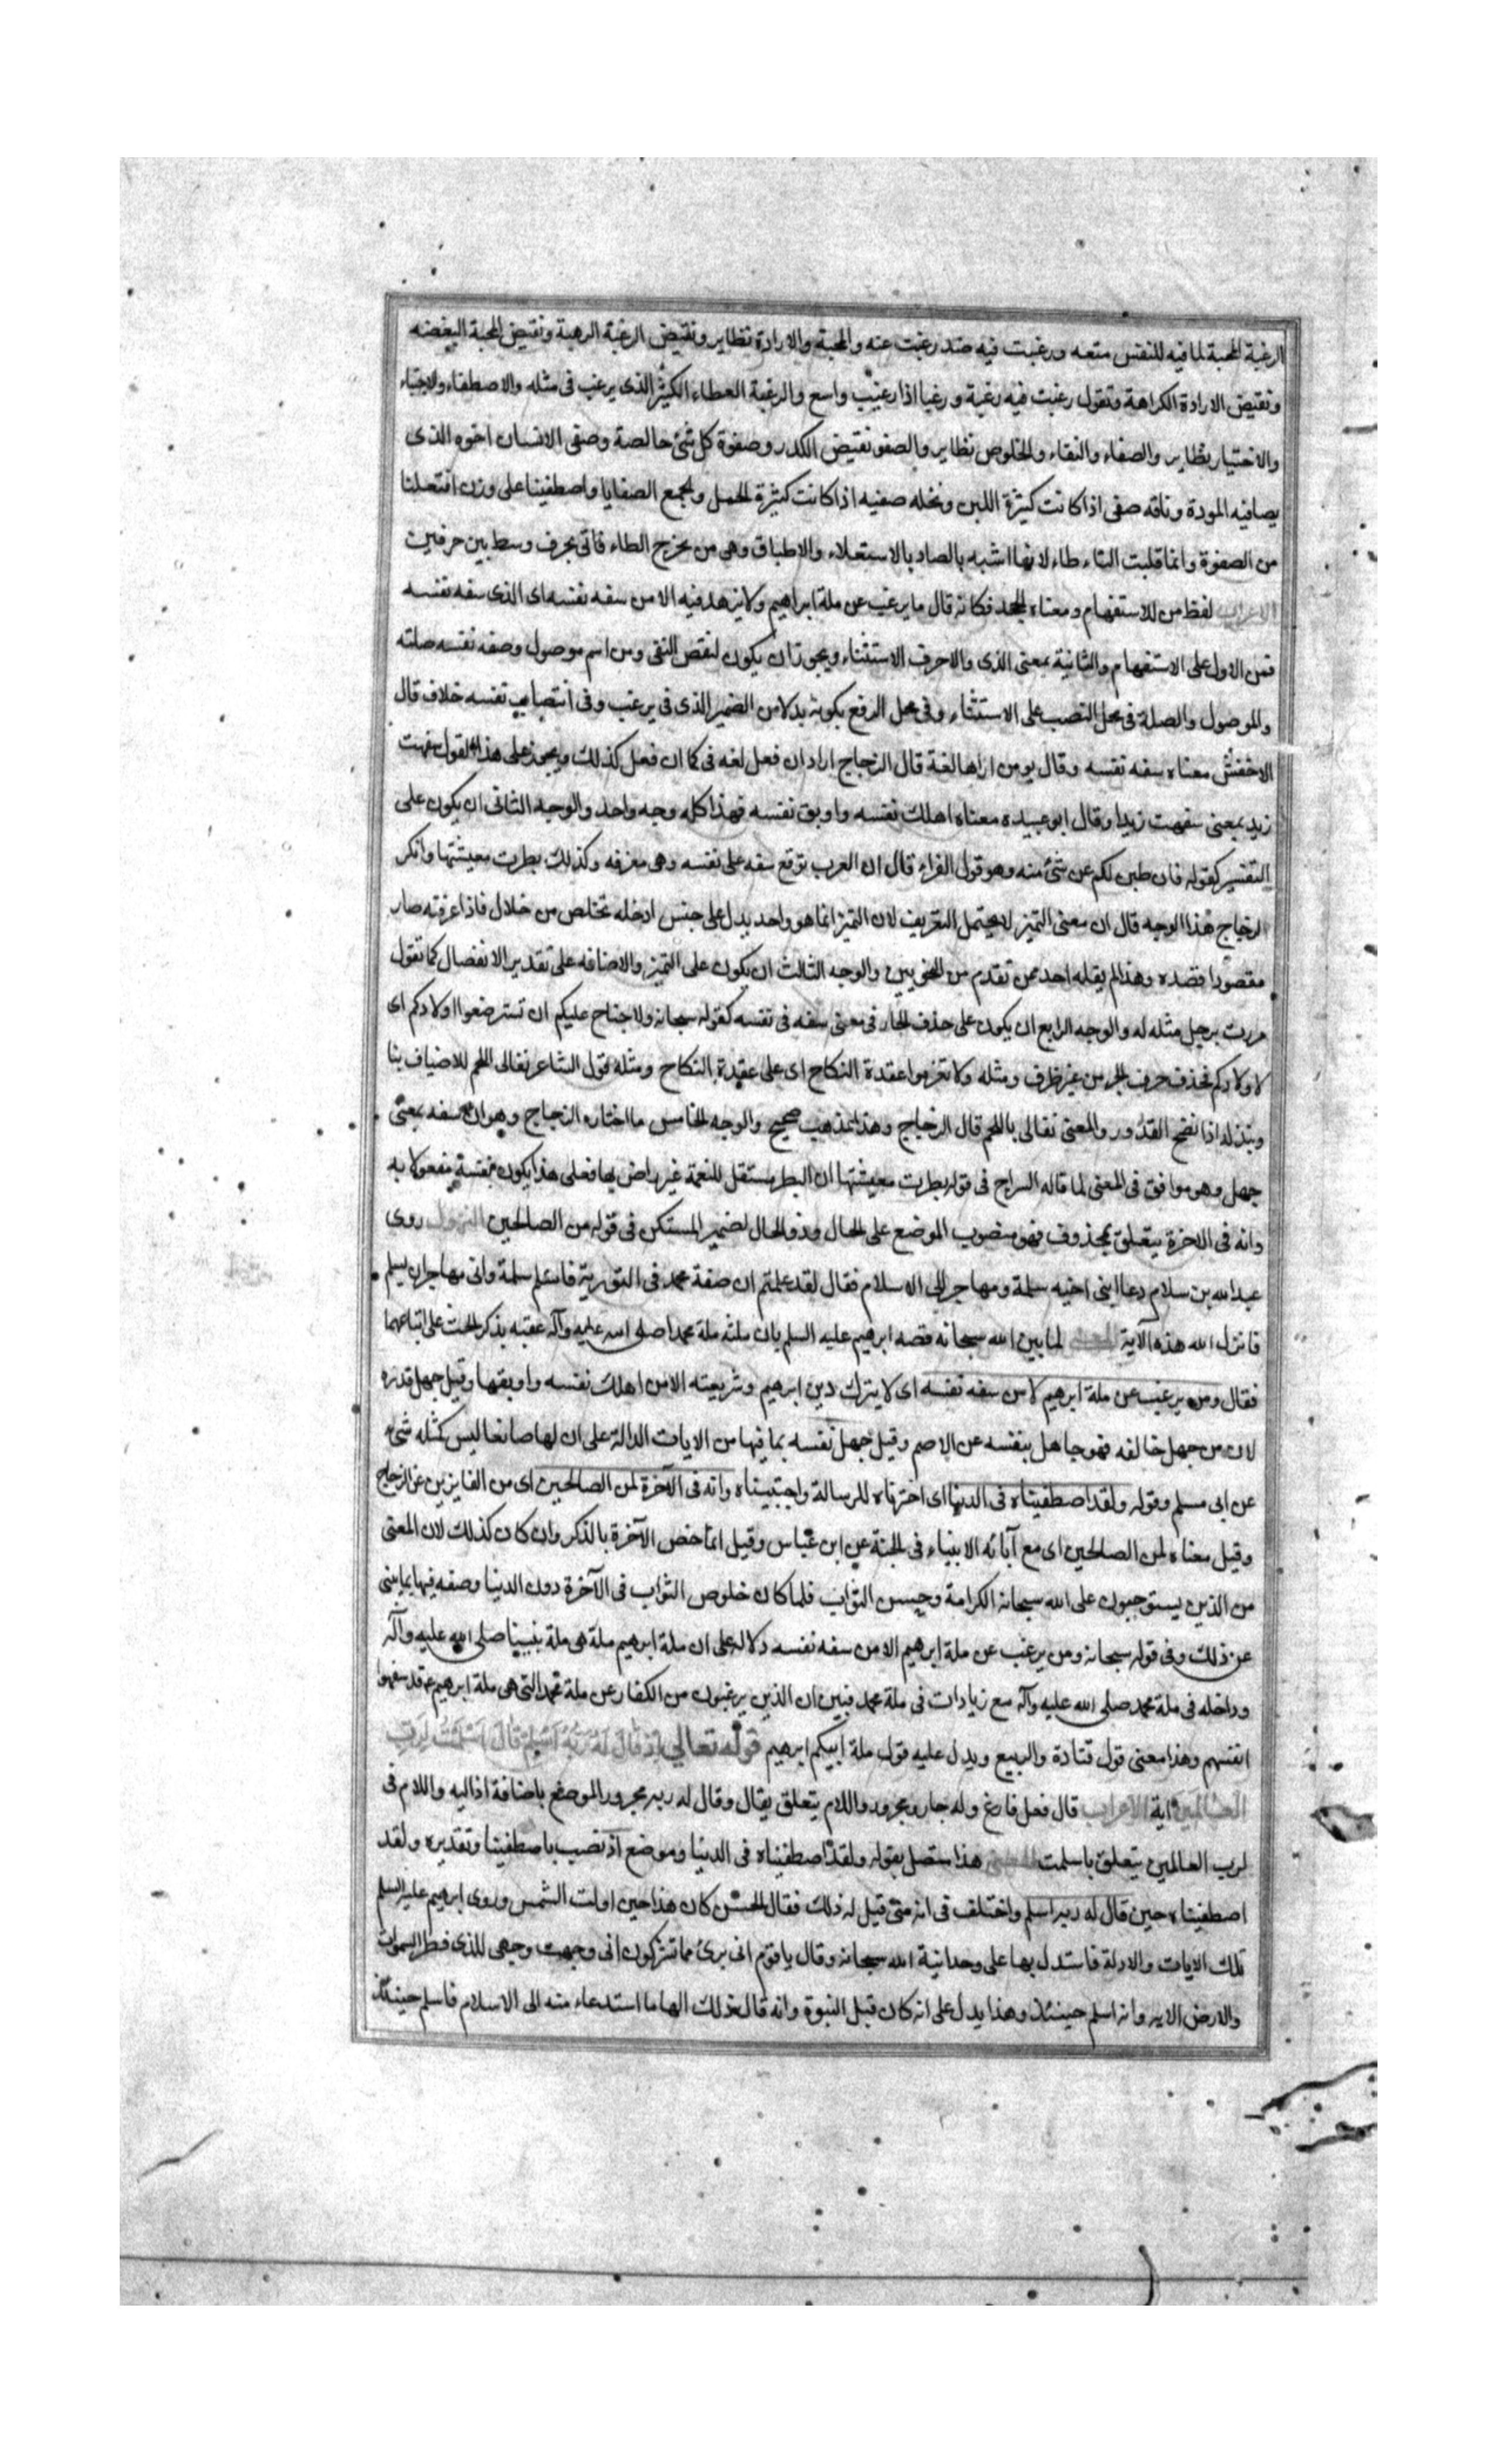 الرغبة المحبة لما فيه للنفس متعه ورغبت فيه ضد رغبت عنه والمحبة والارادة نظاير ونقيض الرغبة الرهبة ونقيض المحبة البغضه
ونقيض الارادة الكراهة وتقول رغبت فيه رغبة ورغبا اذا رغيب واسع والرغبة العطاء الكثير الذى يرغب فى مثله والاصطفاء والاجتباء
والاختيار نظاير والصفاء والنقاء والخلوص نظاير والصفو نقيض الكدر وصفوة كل شئ خالصة وصفى الانسان اخوه الذى
يصافيه المودة وناقه صفى اذا كانت كثيرة اللبن ونخله صفيه اذا كانت كثيرة الحمل والجمع الصفايا واصطفينا على وزن افتعلنا
من الصفوة وانما قلبت التاء طاء لانها اشبه بالصاد بالاستعلاء والاطباق وهى من مخرج الطاء فاتى بحرف وسط بين حرفين
الاعراب لفظ من للاستفهام ومعناه الجحد فكانه قال ما يرغب عن ملة ابراهيم ولا يزهد فيه الا من سفه نفسه اى الذى سفه نفسه
فمن الاول على الاستفهام والثانية بمعنى الذى والا حرف الاستثناء ويجوز ان يكون لنقض النفى ومن اسم موصول وصفه نفسه صلته
والموصول والصلة فى محل النصب على الاستثناء وفى محل الرفع بكونه بدلا من الضمير الذى فى يرغب وفى انتصاب نفسه خلاف قال
الاخفش معناه سفه نفسه وقال يونس اراها لغة قال الزجاج اراد ان فعل لغه فى كما ان فعل كذلك ويجوز على هذا القول سفهت
زيد بمعنى سفهت زيدا وقال ابو عبيده معناه اهلك نفسه واوبق نفسه فهذا كله وجه واحد والوجه الثانى ان يكون على
التفسير كقوله فان طبن لكم عن شئ منه وهو قول الفراء قال ان العرب توقع سفه على نفسه وهى معرفه وكذلك بطرت معيشتها وانكر
الزجاج هذا الوجه قال ان معنى التميز لا يحتمل التعريف لان التميز انما هو واحد يدل على جنس ادخله تخلص من خلال فاذا عرفته صار
مقصودا قصده وهذا لم يقله احد ممن تقدم من النحويين والوجه الثالث ان يكون على التميز والاضافه على تقدير الانفصال كما تقول
مررت برجل مثله له والوجه الرابع ان يكون على حذف الجار فى معنى سفه فى نفسه كقوله سبحانه ولا جناح عليكم ان تسترضعوا اولادكم اى
لاولادكم فحذف حرف الجر من غير ظرف ومثله ولا تعزموا عقدة النكاح اى على عقدة النكاح ومثله قول الشاعر نغالى اللحم للاضياف بنا
وبنذله اذا نضج القدور والمعنى نغالى باللحم قال الزجاج وهذا مذهب صحيح والوجه الخامس ما اختاره الزجاج وهو ان سفه بمعنى
جهل وهو موافق فى المعنى لما قاله السراج فى قوله بطرت معيشتها ان البطر مستقل للنعمة غير راض بها فعلى هذا يكون نفسه مفعولا به
وانه فى الاخرة يتعلق بمحذوف فهو منصوب الموضع على الحال وذو الحال لضمير المستكن فى قوله من الصالحين النزول روى
عبد الله بن سلام دعا ابنى اخيه سلمة ومهاجر الى الاسلام فقال لقد علمتم ان صفة محمد فى التورية فاسلم سلمة وانى مهاجر ان يسلم
فانزل الله هذه الآية المعنى لما بين الله سبحانه قصه ابرهيم عليه السلم بان ملته ملة محمد صلى الله عليه وآله عقبه بذكر الحث على اتباعهما
فقال ومن يرغب عن ملة ابرهيم الا من سفه نفسه اى لا يترك دين ابرهيم وشريعته الا من اهلك نفسه واوبقها وقيل جهل قدره
لان من جهل خالقه فهو جاهل بنفسه عن الاصم وقيل جهل نفسه بما فيها من الايات الدالة على ان لها صانعا ليس كمثله شئ
عن ابى مسلم وقوله ولقد اصطفيناه فى الدنيا اى اخترناه للرسالة واجتبيناه وانه فى الآخرة لمن الصالحين اى من الفايزين عن الزجاج
وقيل معناه لمن الصالحين اى مع آبائه الانبياء فى الجنة عن ابن عباس وقيل انما خص الآخرة بالذكر وان كان كذلك لان المعنى
من الذين يستوجبون على الله سبحانه الكرامة وحسن الثواب فلما كان خلوص الثواب فى الآخرة دون الدنيا وصفه فيها بما ينبى
عن ذلك وفى قوله سبحانه ومن يرغب عن ملة ابرهيم الا من سفه نفسه دلاله على ان ملة ابرهيم ملة هى ملة نبينا صلى الله عليه وآله
وداخله فى ملة محمد صلى الله عليه وآله مع زيادات فى ملة محمد فبين ان الذين يرغبون من الكفار عن ملة محمد التى هى ملة ابرهيم عم قد سفهوا
انفسهم وهذا معنى قول قتادة والربيع ويدل عليه قوله ملة ابيكم ابرهيم قوله تعالى اِذْ قَالَ لَهُ رَبُّهُ اَسْلِمْ قَالَ اَسْلَمْتُ لِرَبِّ
العالمين اية الاعراب قال فعل فارغ وله جار ومجرور واللام يتعلق بقال وقال له ربه مجرور الموضع باضافة اذ اليه واللام فى
لرب العالمين يتعلق باسلمت المعنى هذا متصل بقوله ولقد اصطفيناه فى الدنيا وموضع اذ نصب باصطفينا وتقديره ولقد
اصطفيناه حين قال له ربه اسلم واختلف فى انه متى قيل له ذلك فقال الحسن كان هذا حين اولت الشمس وروى ابرهيم عليه السلم
تلك الايات والادلة فاستدل بها على وحدانية الله سبحانه وقال يا قوم انى برئ مما تشركون انى وجهت وجهى للذى فطر السموات
والارض الايه وانه اسلم حينئذ وهذا يدل على انه كان قبل النبوة وانه قال ذلك الهاما استدعاء منه الى الاسلام فاسلم حينئذ